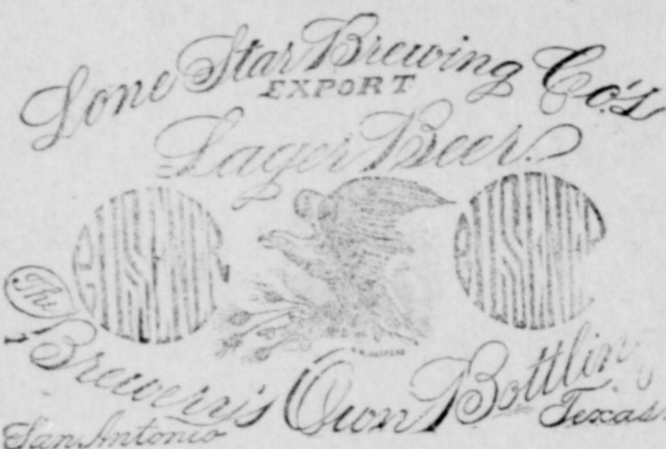 Lone Star Brewing Co's
EXPORT
Lager Beer.
The
Brewery's Own Bottlin
San Antonio Texas